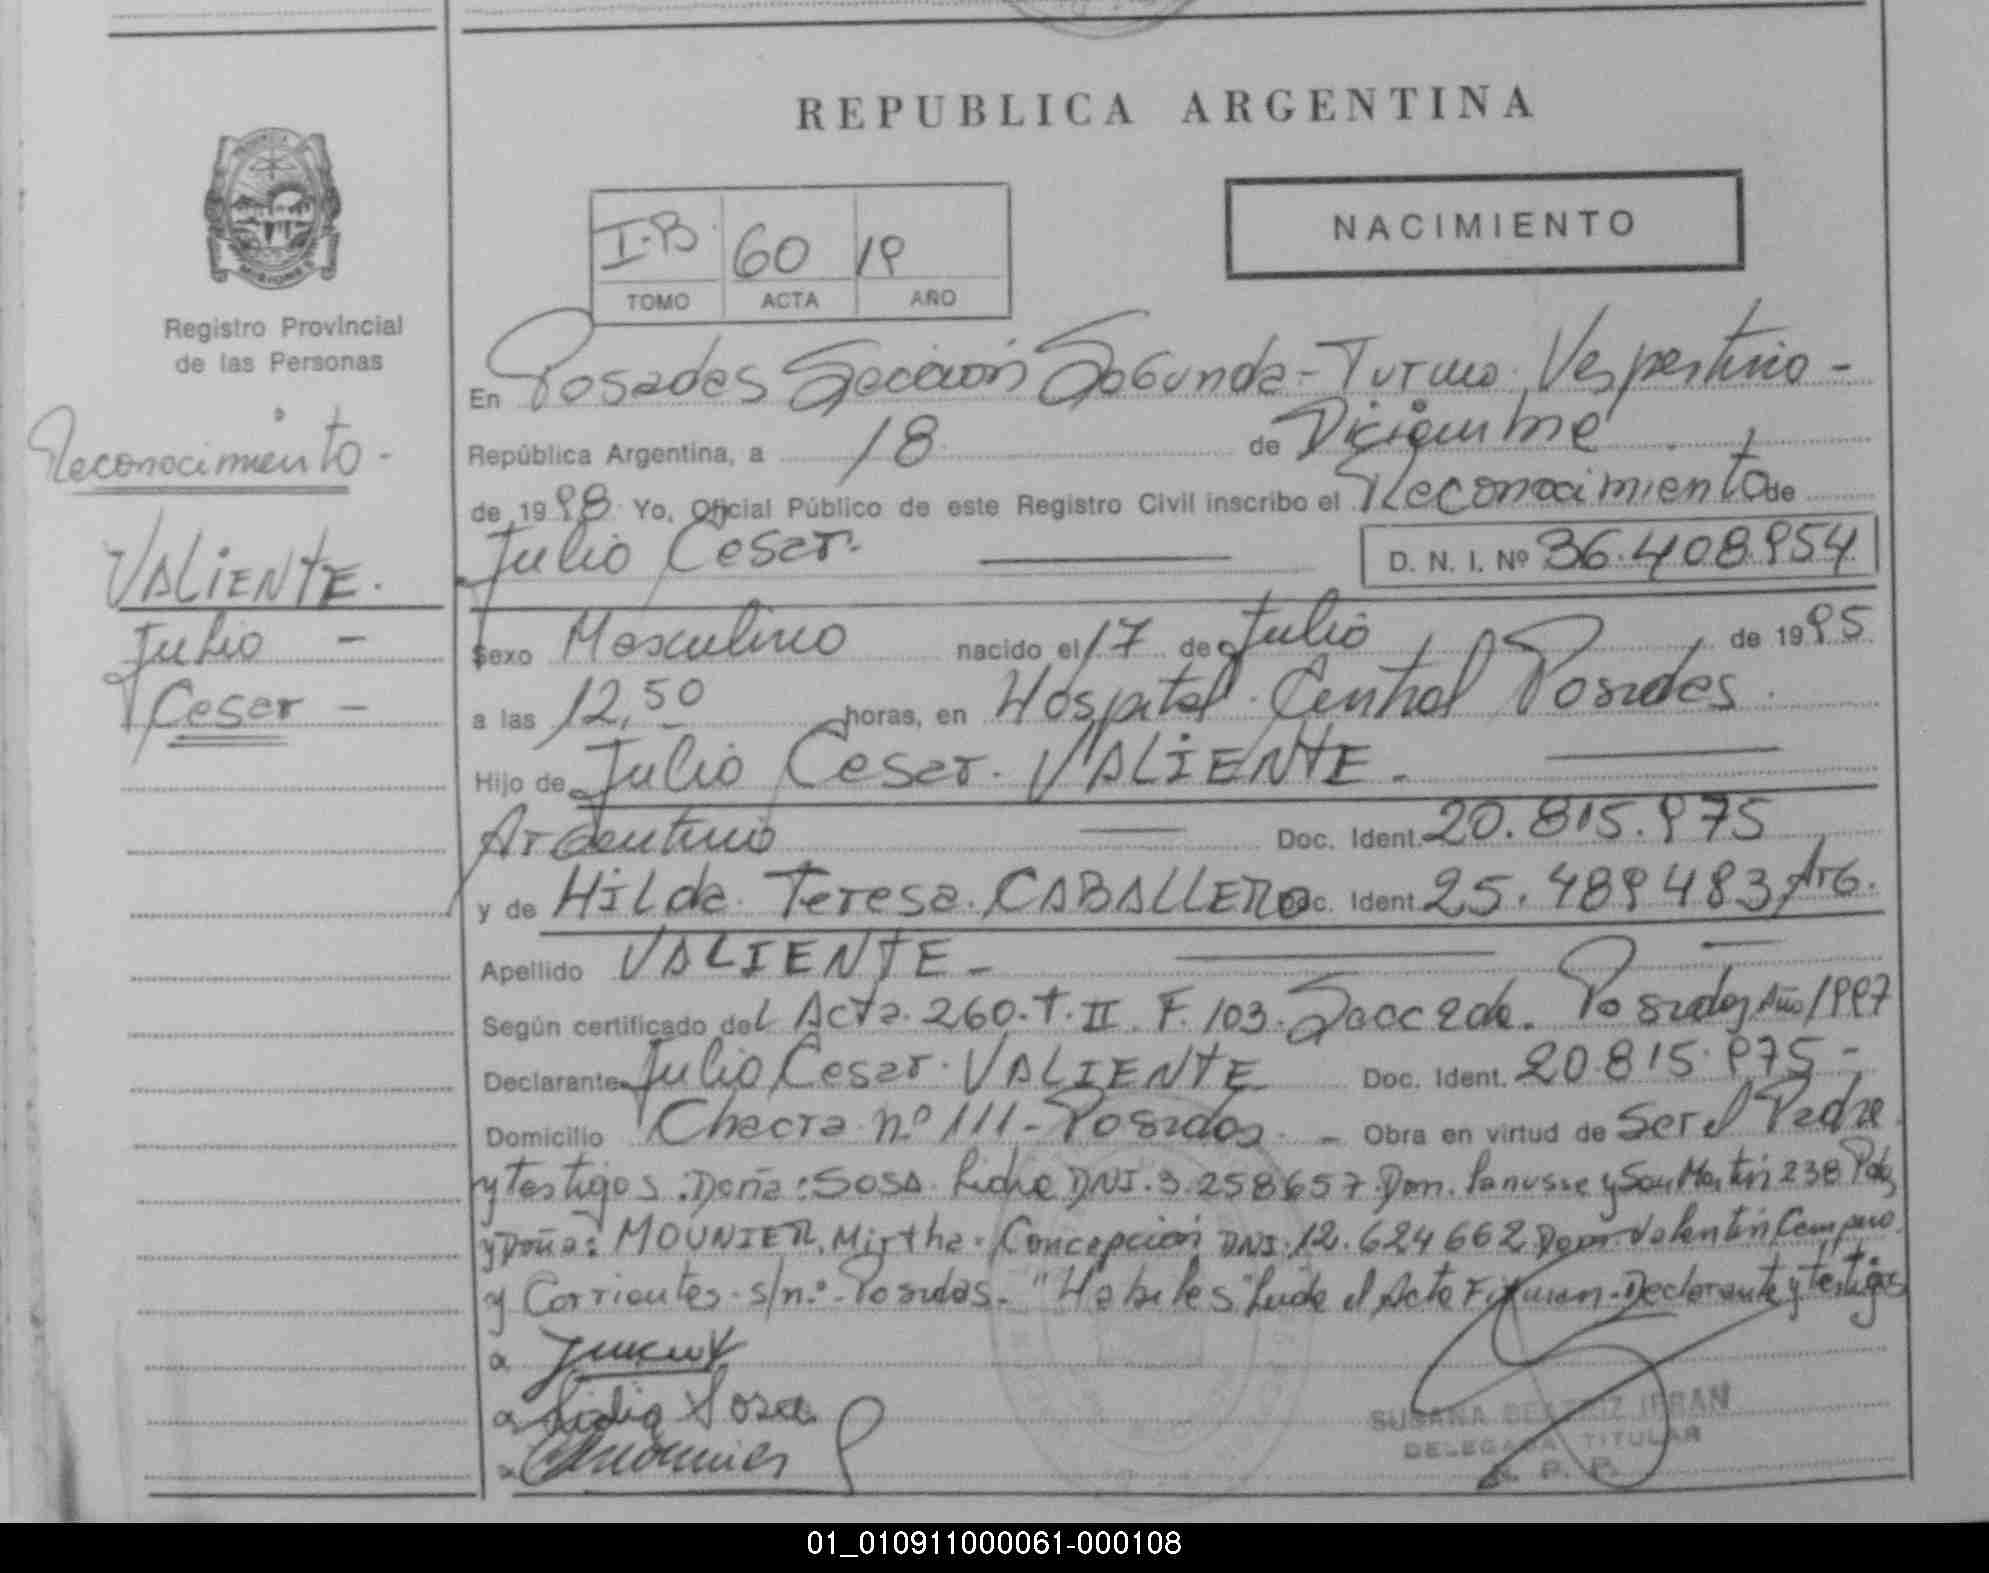 REPUBLICA ARGENTINA
NACIMIENTO
I-B 60 19
TOMO ACTA AÑO
Registro Provincial
de las Personas
Reconocimiento -
VALIENTE.
Julio -
Cesar -
En Posadas Sección Segunda - Turno Vespertino -
República Argentina, a 18 de Diciembre
de 1998 Yo, Oficial Público de este Registro Civil inscribo el Reconocimiento de
Julio Cesar. D. N. I. Nº 36.408.954
Sexo Masculino nacido el 17 de Julio de 1995
a las 12,50 horas, en Hospital Central Posadas.
Hijo de Julio Cesar. VALIENTE.
Argentino Doc. Ident. 20.815.975
y de Hilda Teresa. CABALLERO Doc. Ident. 25.489483, Arg.
Apellido VALIENTE -
Según certificado del Acta. 260. T. II. F. 103. Posadas Año 1997
Declarante Julio Cesar. VALIENTE Doc. Ident. 20.815.975 -
Domicilio Chacra nº 111 - Posadas - Obra en virtud de Ser el Padre
y testigos: Doña: SOSA Lidia DNI. 3.258657 Dom. Lanusse y San Martin 238 Pdas
y Doña: MOUNIER, Mirtha Concepción DNI. 12.624662 Dom. Valentin
y Corrientes s/nº - Posadas. "Habiles" Leida el Acta Firman - Declarante y testigos
a
a Lidia Sosa
a
SUSANA BEATRIZ IRRAN
DELEGADA TITULAR
R. P. P.
01_010911000061-000108